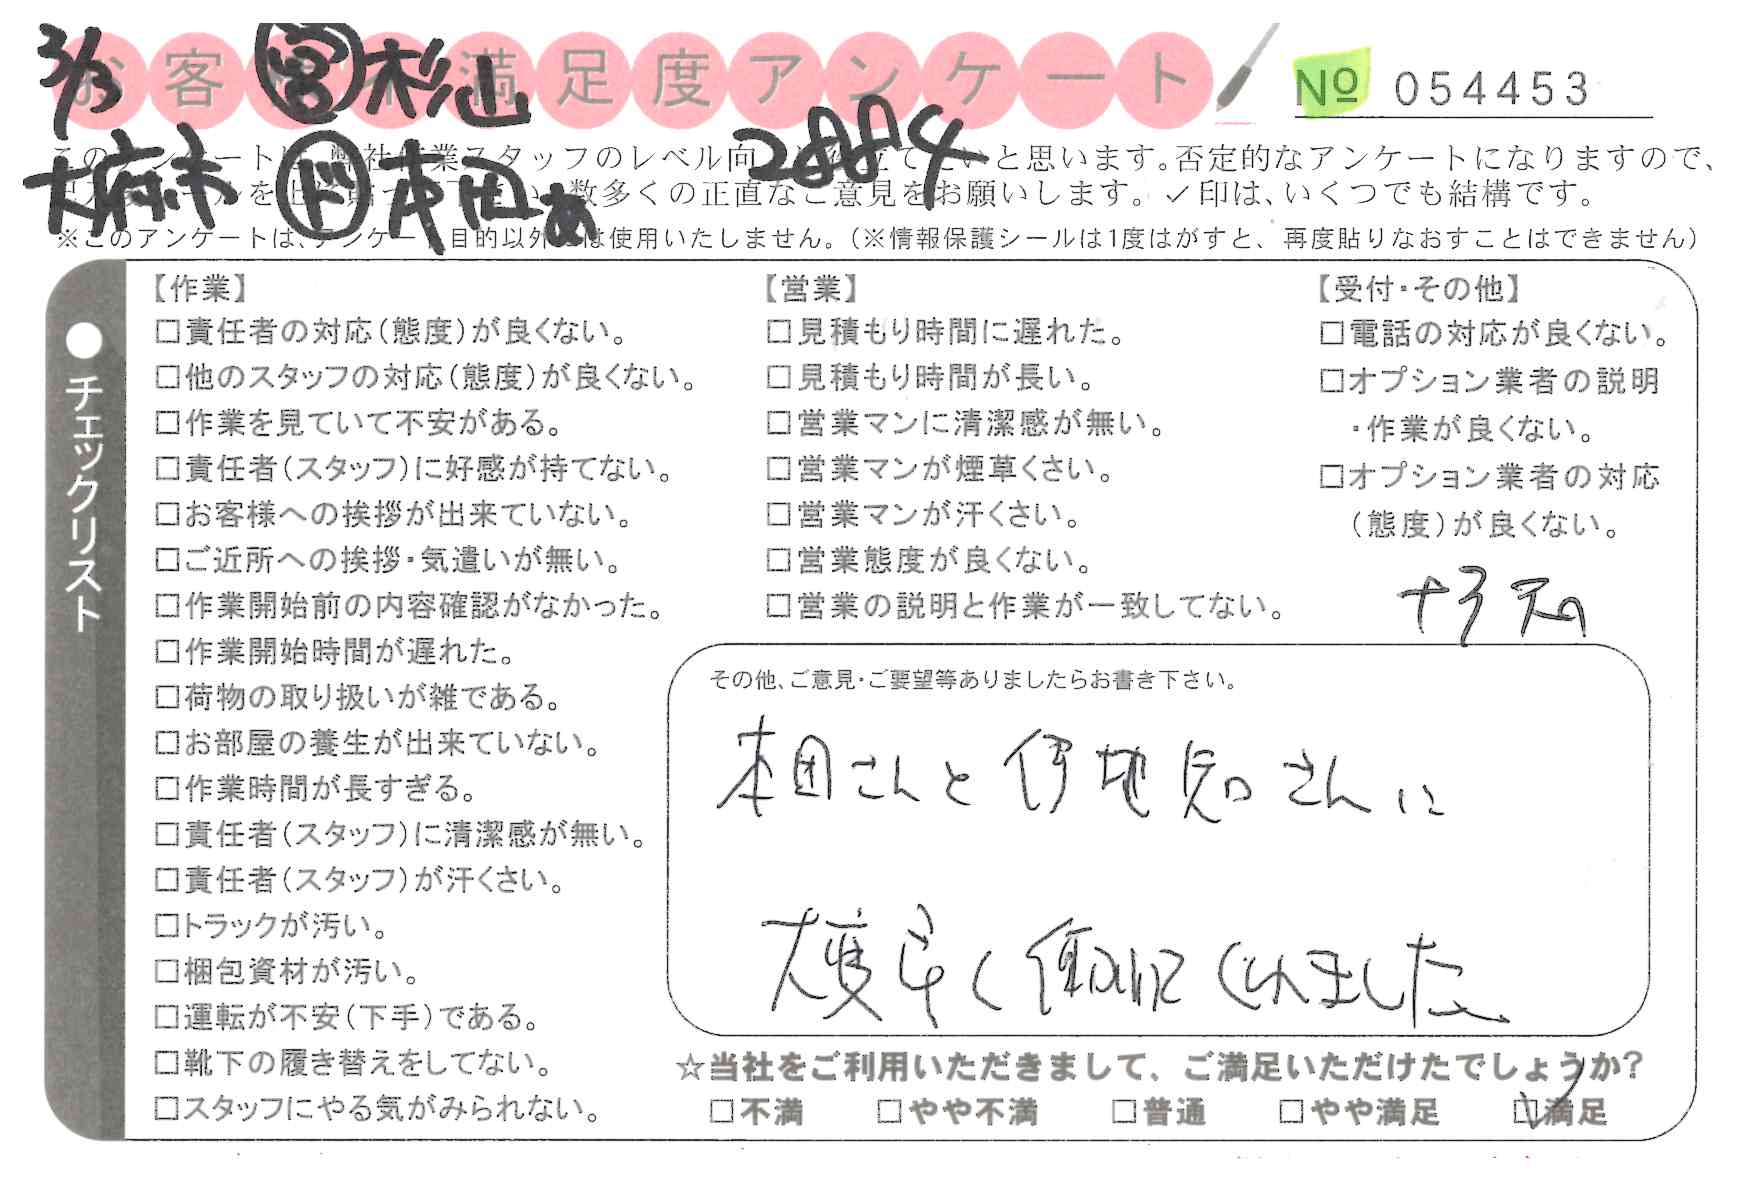 3/3 ㊂ 杉山
お客様満足度アンケート
№ 054453
大府市 ド 本田 あ 2884
このアンケートは、弊社作業スタッフのレベル向上に役立てたいと思います。否定的なアンケートになりますので、
数多くの正直なご意見をお願いします。✓印は、いくつでも結構です。
※このアンケートは、アンケート目的以外には使用いたしません。（※情報保護シールは1度はがすと、再度貼りなおすことはできません）
●チェックリスト
【作業】
□責任者の対応（態度）が良くない。
□他のスタッフの対応（態度）が良くない。
□作業を見ていて不安がある。
□責任者（スタッフ）に好感が持てない。
□お客様への挨拶が出来ていない。
□ご近所への挨拶・気遣いが無い。
□作業開始前の内容確認がなかった。
□作業開始時間が遅れた。
□荷物の取り扱いが雑である。
□お部屋の養生が出来ていない。
□作業時間が長すぎる。
□責任者（スタッフ）に清潔感が無い。
□責任者（スタッフ）が汗くさい。
□トラックが汚い。
□梱包資材が汚い。
□運転が不安（下手）である。
□靴下の履き替えをしてない。
□スタッフにやる気がみられない。
【営業】
□見積もり時間に遅れた。
□見積もり時間が長い。
□営業マンに清潔感が無い。
□営業マンが煙草くさい。
□営業マンが汗くさい。
□営業態度が良くない。
□営業の説明と作業が一致してない。
【受付・その他】
□電話の対応が良くない。
□オプション業者の説明
・作業が良くない。
□オプション業者の対応
（態度）が良くない。
その他、ご意見・ご要望等ありましたらお書き下さい。
本田さんと伊地知さんに
大変早く働いてくれました
☆当社をご利用いただきまして、ご満足いただけたでしょうか？
□不満 □やや不満 □普通 □やや満足 ☑満足